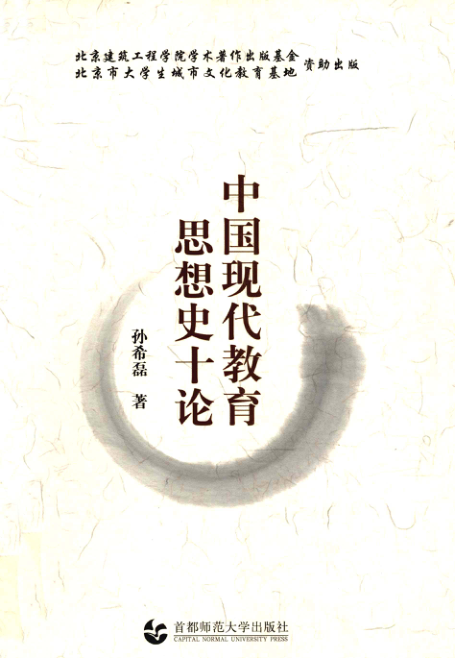 北京建筑工程学院学术著作出版基金
北京市大学生城市文化教育基地
资助出版
中国现代教育
思想史十论
孙希磊 著
首都师范大学出版社
CAPITAL NORMAL UNIVERSITY PRESS